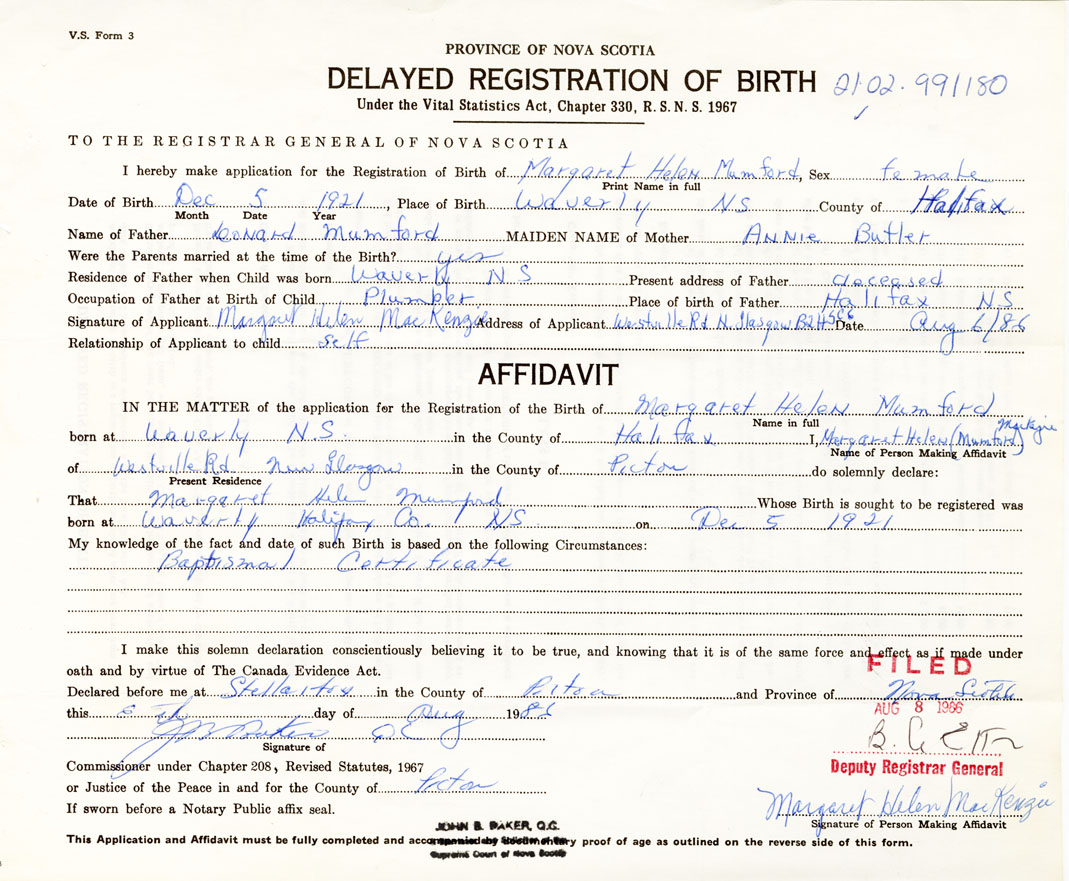 V.S. Form 3
PROVINCE OF NOVA SCOTIA
DELAYED REGISTRATION OF BIRTH 21·02·99/180
Under the Vital Statistics Act, Chapter 330, R. S. N. S. 1967
TO THE REGISTRAR GENERAL OF NOVA SCOTIA
I hereby make application for the Registration of Birth of Margaret Helen Mumford, Sex female
Print Name in full
Date of Birth Dec 5 1921, Place of Birth Waverly NS County of Halifax
Month Date Year
Name of Father Leonard Mumford MAIDEN NAME of Mother Annie Butler
Were the Parents married at the time of the Birth? yes
Residence of Father when Child was born Waverly NS Present address of Father deceased
Occupation of Father at Birth of Child Plumber Place of birth of Father Halifax N.S.
Signature of Applicant Margaret Helen MacKenzie Address of Applicant Westville Rd N. Glasgow B2H 5C6 Date Aug 6/86
Relationship of Applicant to child self
AFFIDAVIT
IN THE MATTER of the application for the Registration of the Birth of Margaret Helen Mumford
Name in full
born at Waverly N.S. in the County of Halifax I, Margaret Helen (Mumford)
Name of Person Making Affidavit
of Westville Rd. New Glasgow in the County of Pictou do solemnly declare:
Present Residence
That Margaret Helen Mumford Whose Birth is sought to be registered was
born at Waverly Halifax Co. NS on Dec 5 1921
My knowledge of the fact and date of such Birth is based on the following Circumstances:
Baptismal Certificate
I make this solemn declaration conscientiously believing it to be true, and knowing that it is of the same force and effect as if made under
oath and by virtue of The Canada Evidence Act.
FILED
Declared before me at Stellarton in the County of Pictou and Province of Nova Scotia
this 6 th day of Aug 1986
AUG 8 1986
Signature of
Deputy Registrar General
Commissioner under Chapter 208, Revised Statutes, 1967
or Justice of the Peace in and for the County of Pictou
Margaret Helen MacKenzie
If sworn before a Notary Public affix seal.
Signature of Person Making Affidavit
JOHN B. BAKER, Q.C.
This Application and Affidavit must be fully completed and proof of age as outlined on the reverse side of this form.
Supreme Court of Nova Scotia